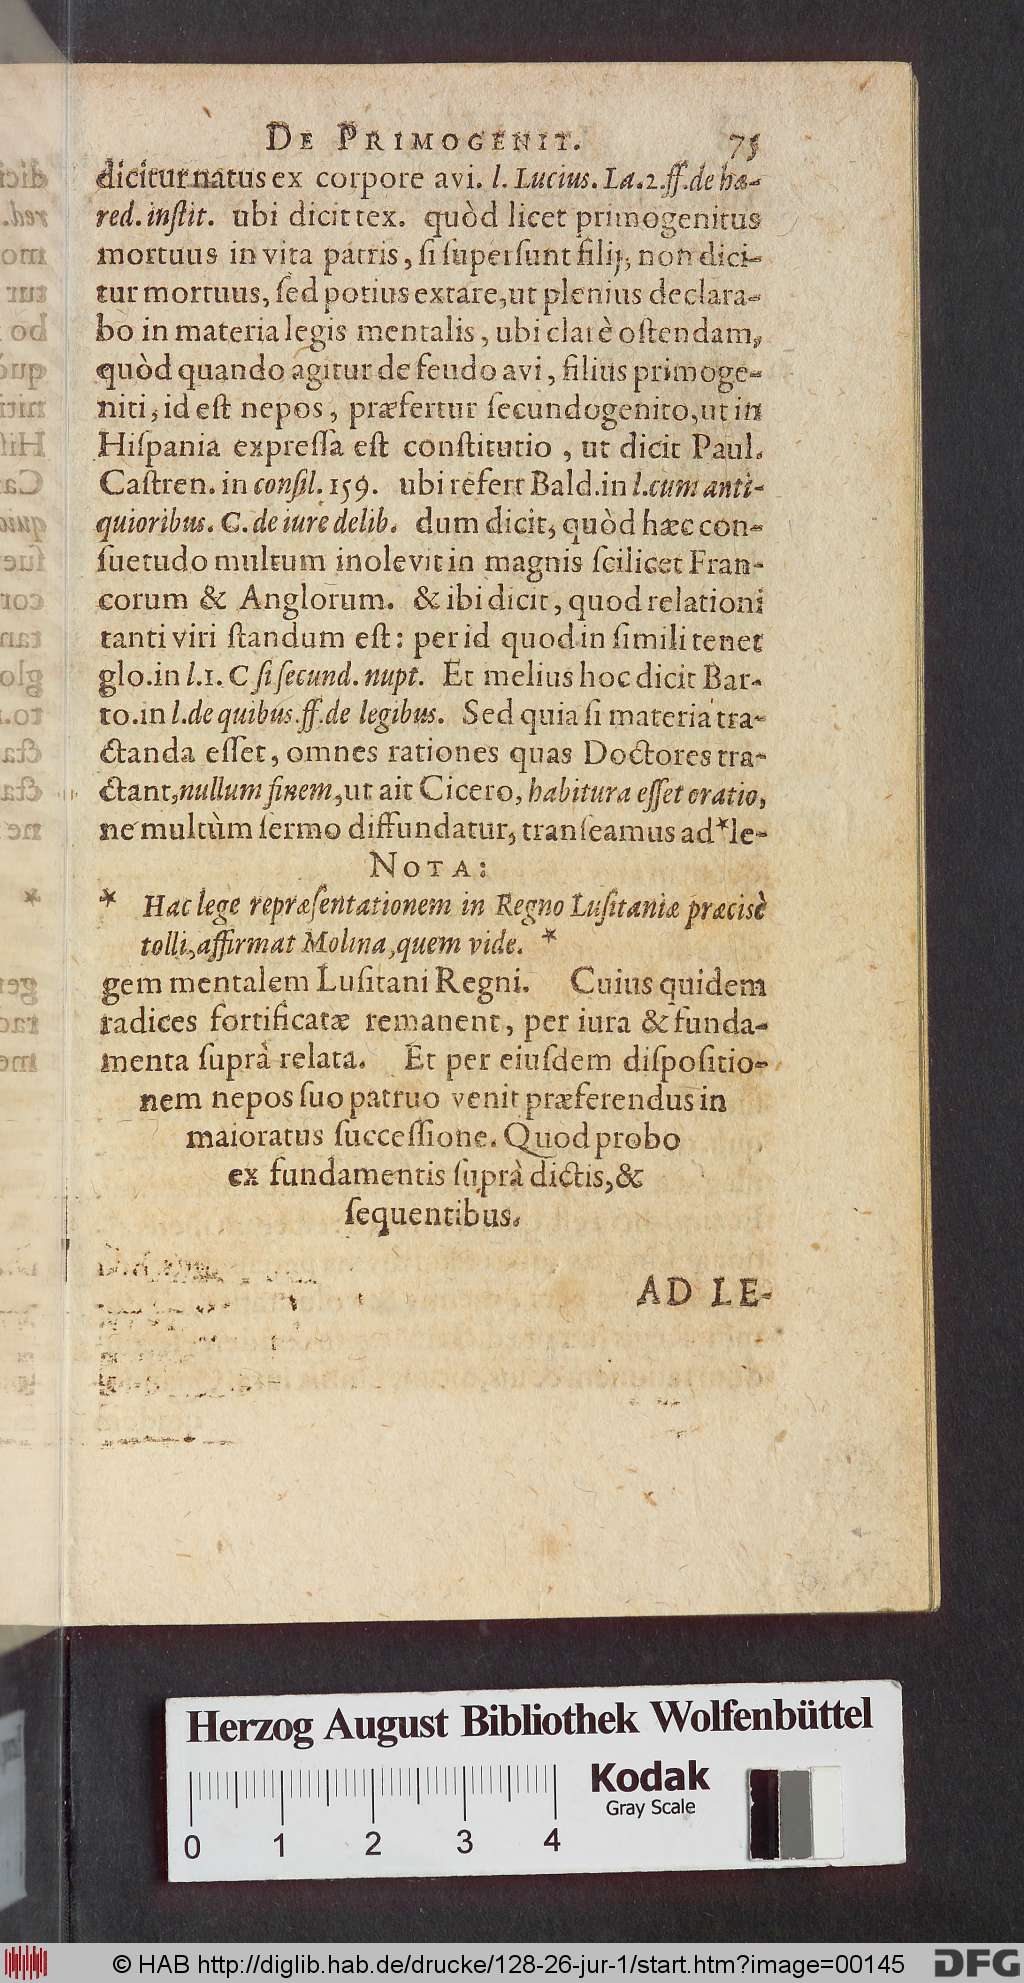 DE PRIMOGENIT. 75
dicitur natus ex corpore avi. l. Lucius. La. 2. ff. de hæ-
red. inſtit. ubi dicit tex. quòd licet primogenitus
mortuus in vita patris, ſi ſuperſunt filij, non dici-
tur mortuus, ſed potius extare, ut plenius declara-
bo in materia legis mentalis, ubi clarè oſtendam,
quòd quando agitur de feudo avi, filius primoge-
niti, id eſt nepos, præfertur ſecundogenito, ut in
Hiſpania expreſſa eſt conſtitutio, ut dicit Paul.
Caſtren. in conſil. 159. ubi refert Bald. in l. cum anti-
quioribus. C. de iure delib. dum dicit, quòd hæc con-
ſuetudo multum inolevit in magnis ſcilicet Fran-
corum & Anglorum. & ibi dicit, quod relationi
tanti viri ſtandum eſt: per id quod in ſimili tenet
glo. in l. 1. C ſi ſecund. nupt. Et melius hoc dicit Bar-
to. in l. de quibus. ff. de legibus. Sed quia ſi materia tra-
ctanda eſſet, omnes rationes quas Doctores tra-
ctant, nullum finem, ut ait Cicero, habitura eſſet oratio,
ne multùm ſermo diffundatur, tranſeamus ad * le-
NOTA:
* Hac lege repræſentationem in Regno Luſitaniæ præcisè
tolli, affirmat Molina, quem vide. *
gem mentalem Luſitani Regni. Cuius quidem
radices fortificatæ remanent, per iura & funda-
menta ſuprà relata. Et per eiuſdem diſpoſitio-
nem nepos ſuo patruo venit præferendus in
maioratus ſucceſſione. Quod probo
ex fundamentis ſuprà dictis, &
ſequentibus.
AD LE-
Herzog August Bibliothek Wolfenbüttel
Kodak
Gray Scale
0 1 2 3 4
© HAB http://diglib.hab.de/drucke/128-26-jur-1/start.htm?image=00145
DFG